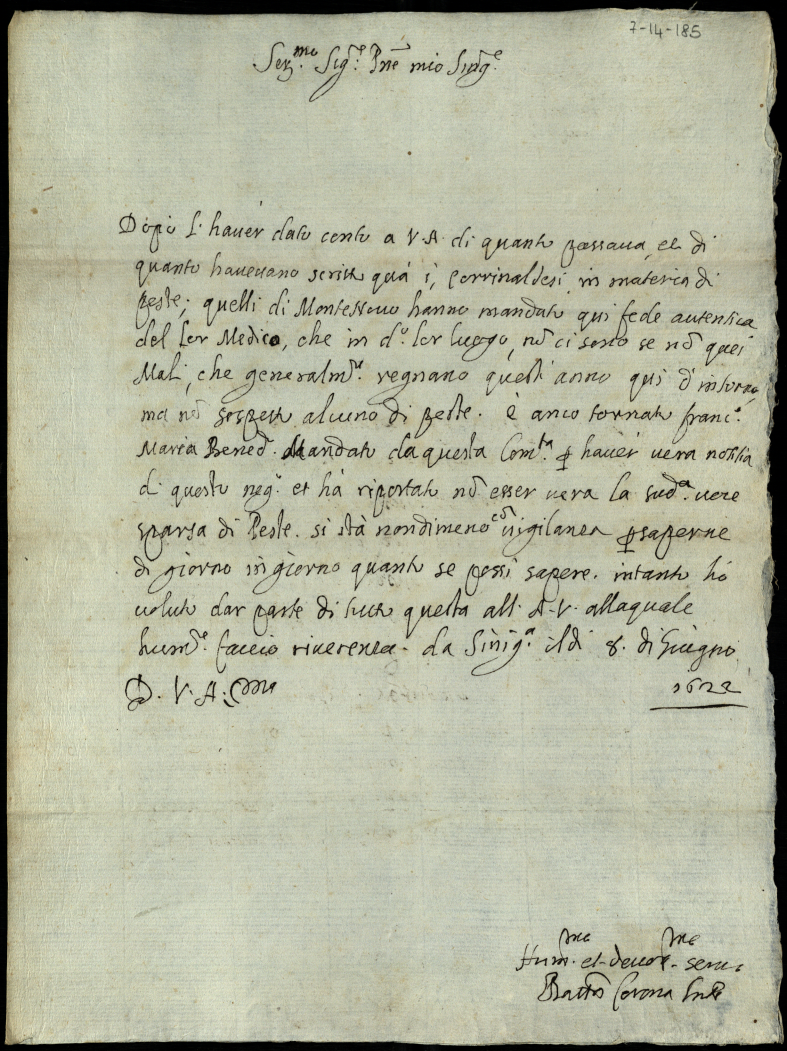 7-14-185
Ser.mo Sig.r Pne mio Sing.e
Dopò l'haver dato conto a V.A. di quanto passava, et di
quanto havevano scritto quà i Corrinaldesi in materia di
peste; quelli di MonteNovo hanno mandato qui fede autentica
del lor Medico, che in d.o lor luogo, nō ci sono se nō quei
Mali, che generalm.te regnano quest'anno qui d'intorno,
ma nō sospetto alcuno di peste. è anco tornato Franc.o
Maria Bened. Mandato da questa Com.tà p haver vera notitia
di questo neg.o et hà riportato nō esser vera la sud.a voce
sparsa di Peste. si stà nondimeno cō vigilanza p saperne
di giorno in giorno quanto se possi sapere. intanto hò
voluto dar parte di tutto questo all'A.V. alla quale
hum.e faccio riverenza. da Sinig.a il dì 8. di Giugno
D. V. A. S.ma 1622
Hum.mo et devot.mo serv.
Bartō Corona